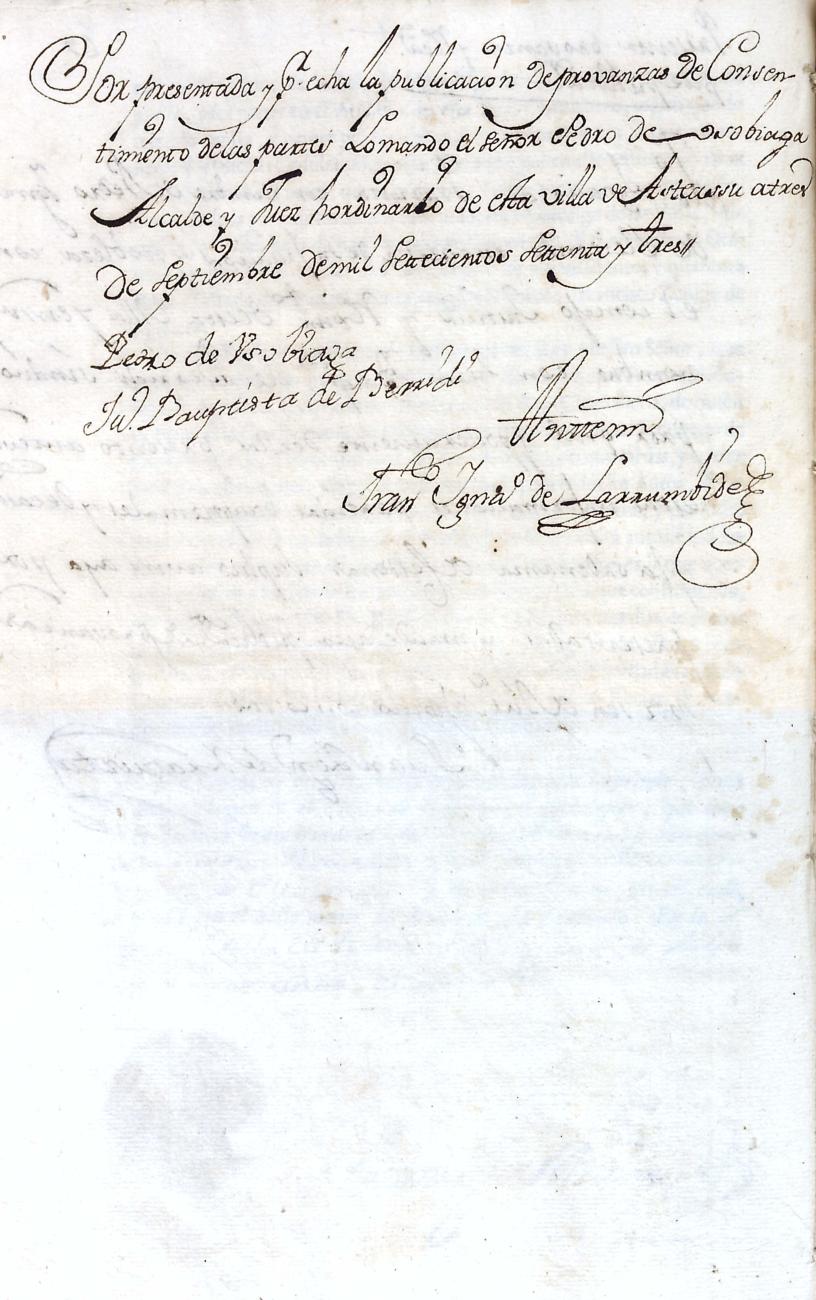 Por presentada y pr. echa la publicacion de provanzas de Consen-
timiento de las partes Lo mando el señor Pedro de Vsobiaga
Alcalde y Juez hordinario de esta villa de Asteassu a tres
de septiembre de mil settecientos settenta y tres//
Pedro de Vsobiaga
Ju.n Bauptista de Berridi
Antemi
Fran.co Ygna.o de Larrumbide